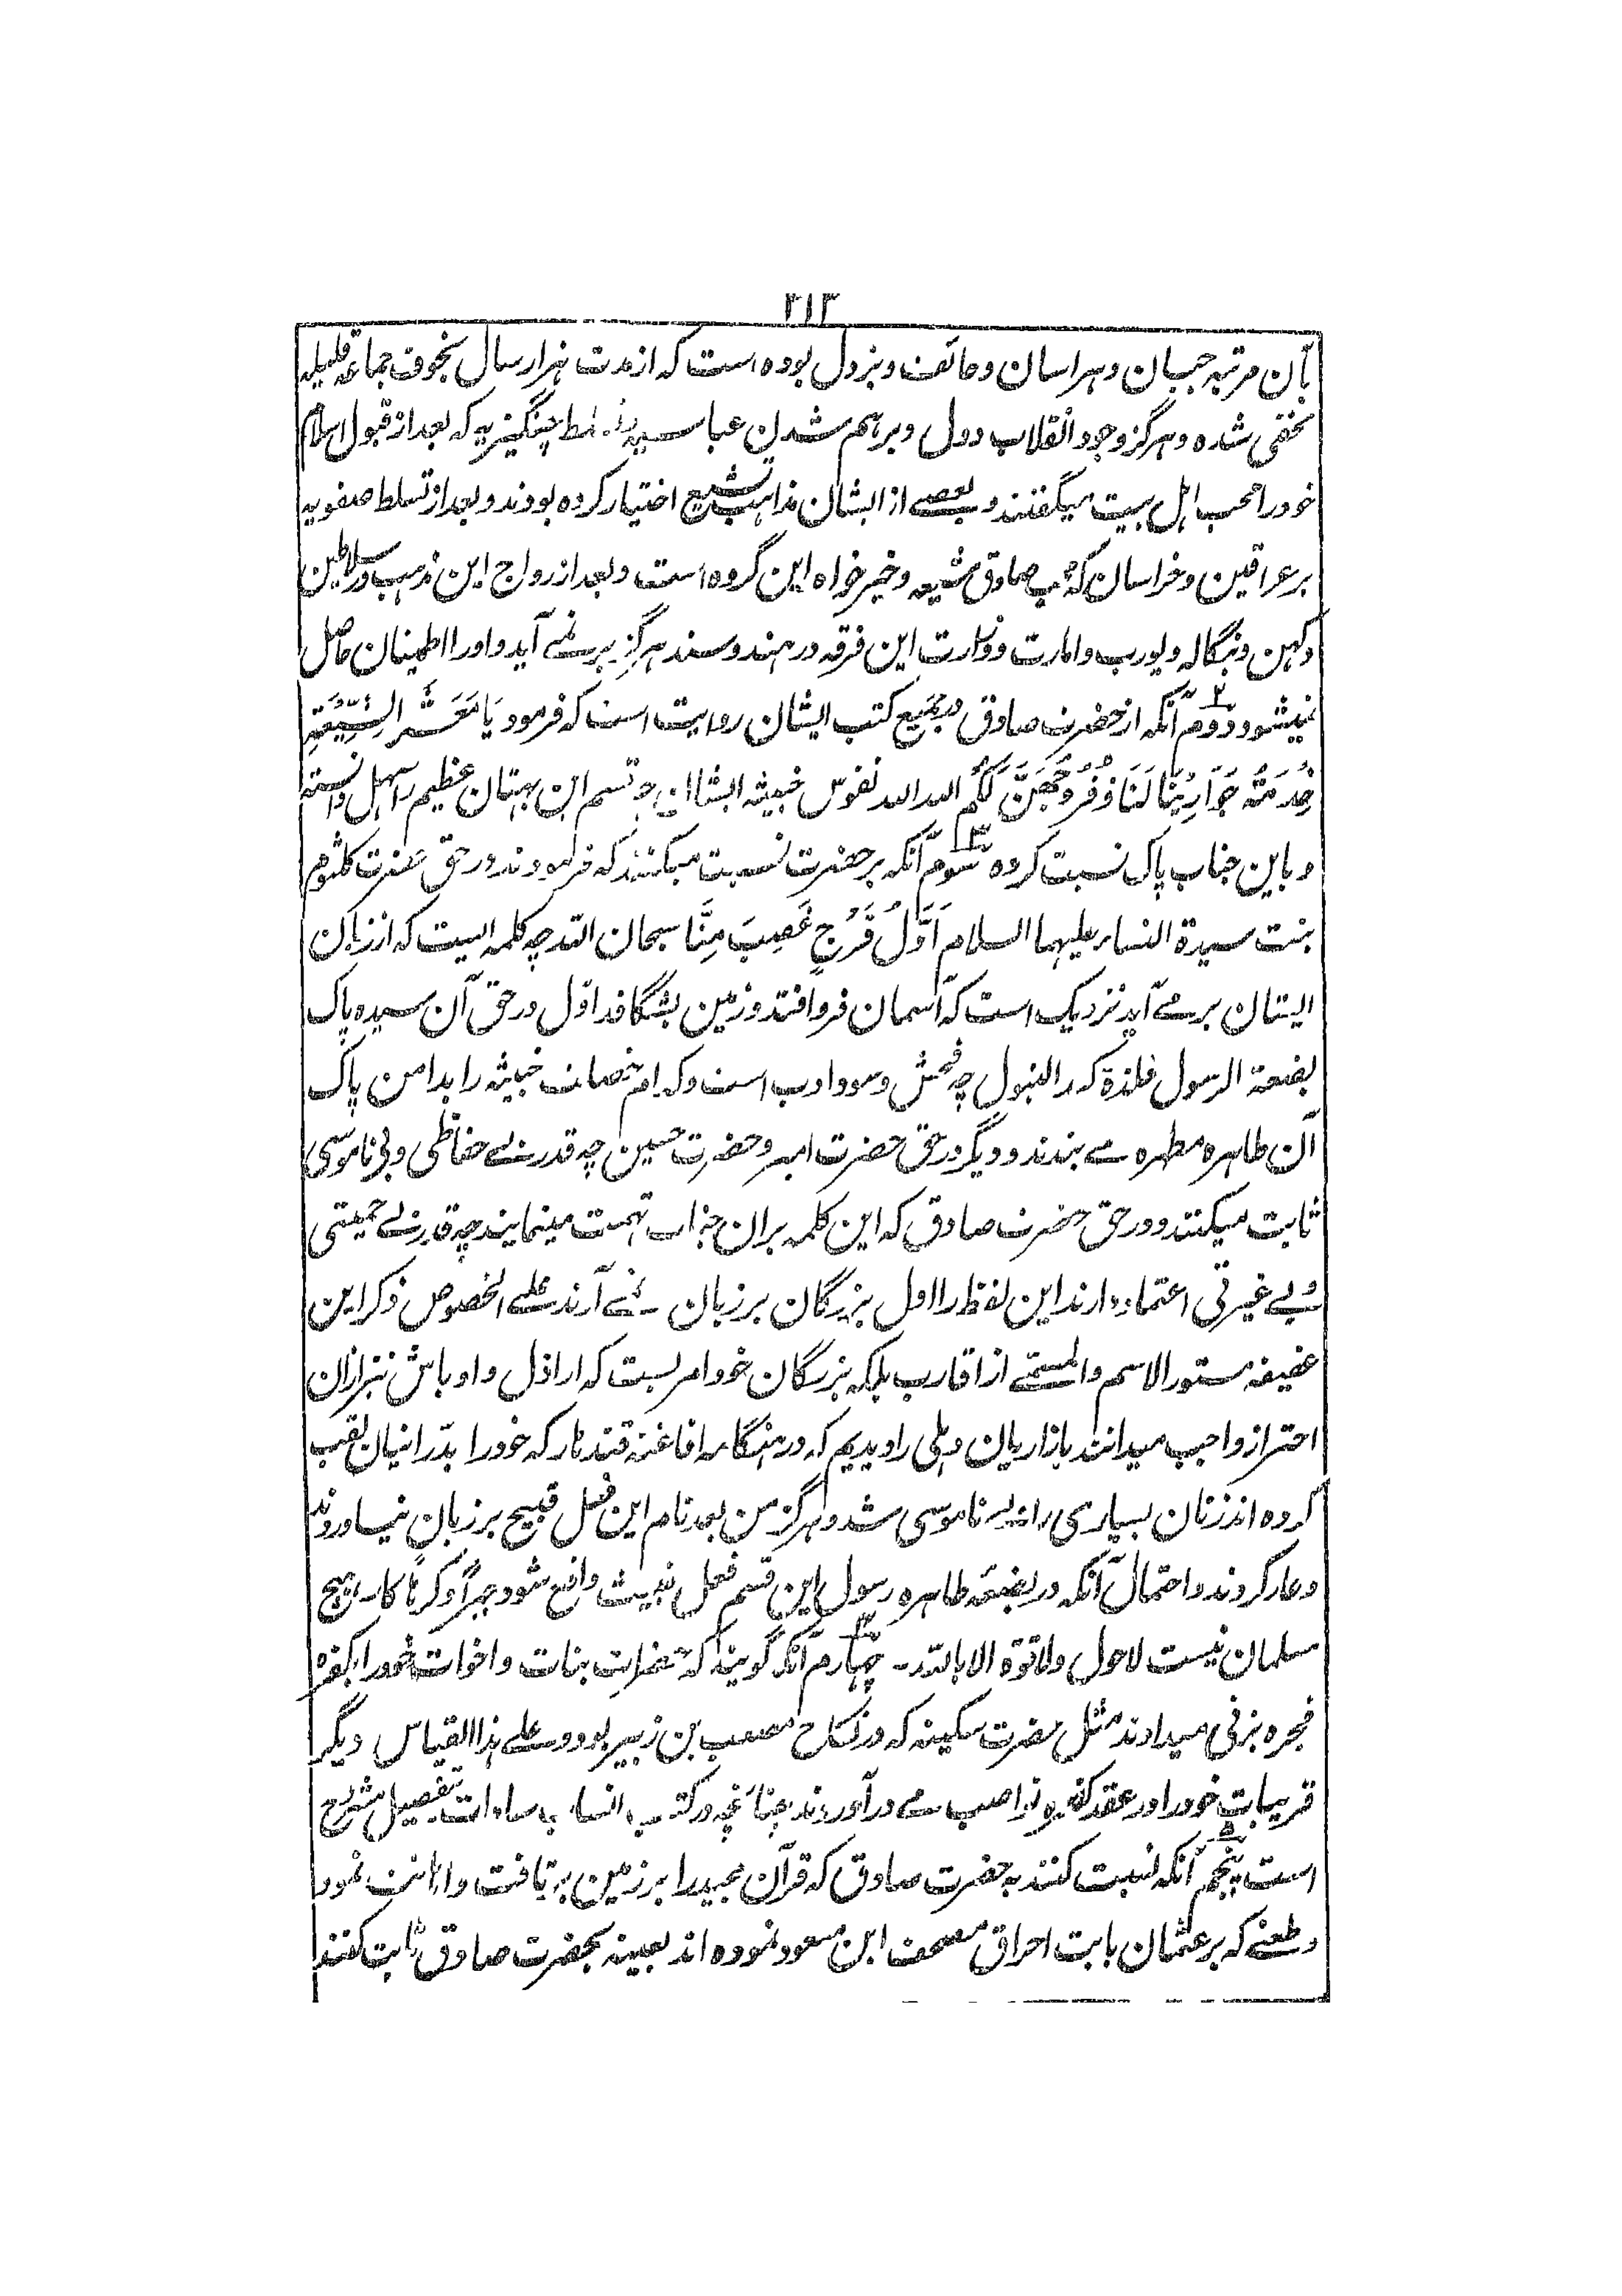 ۲۱۳
بآن مرتبه جبان و هراسان و خائف و بزدل بوده است که از مدت هزار سال بخوف جماعه قلیله
مخفی شده و هرگز وجود انقلاب دول و برهم شدن عباسیه تسلط چنگیزیه که بعد از قبول اسلام
خود را محب اهل بیت میگفتند و بعضے از ایشان مذاهب تشیع اختیار کرده بودند و بعد از تسلط صفویه
بر عراقین و خراسان که محب صادق شیعه و خیرخواه این گروه است و بعد از رواج این مذهب در سلاطین
دکهن و بنگاله و پورب و امارت و وزارت این فرقه در هند و سند هرگز بر نمے آید و او را اطمینان حاصل
نمیشود دوم ۲ آنکه از حضرت صادق در جمیع کتب ایشان روایت است که فرمود یَا مَعْشَرَ الشِّیْعَةِ
خِدْمَةُ جَوَارِیْنَا لَنَا وَفُرُوْجُهُنَّ لَکُمْ الله الله نفوس خبیثه ایشان چه قسم این بهتان عظیم را سهل دانسته
و باین جناب پاک نسبت کرده سوم ۳ آنکه بر حضرت نسبت میکنند که فرمودند در حق حضرت کلثوم
بنت سیدة النساء علیهما السلام اَوَّلُ فَرْجٍ غُصِبَ مِنَّا سبحان الله چه کلمه ایست که از زبان
ایشان بر مے آید نزدیک است که آسمان فرو افتد و زمین بشگافد اوّل در حق آن سیده پاک
بضعة الرسول فلذة کبد البتول چه فحش و سوء ادب است و کدام خصلت خبیثه را بدامن پاک
آن طاهره مطهره مے بندند و دیگر در حق حضرت امیر و حضرت حسین چه قدر بے حفاظی و بی ناموسی
ثابت میکنند و در حق حضرت صادق که این کلمه بر ان جناب تهمت مینمایند چه قدر بے حمیتی
و بے غیرتی اعتماد دارند این لفظ را اول بزرگان بر زبان نمے آرند علے الخصوص ذکر این
عفیفه مستور الاسم والمسمے از اقارب بلکه بزرگان خود امریست که اراذل و اوباش نیز ازان
احتراز واجب میدانند بازاریان دهلی را دیدیم که در هنگامه افاغنه قندهار که خود را بدّرانیان لقب
کرده اند زنان بسیاری را بے ناموسی شد و هرگز من بعد نام این فعل قبیح بر زبان نیاوردند
و عار کردند و احتمال آنکه در بضعه طاهره رسول این قسم فعل خبیث واقع شود جبراً و کرهاً کار هیچ
مسلمان نیست لاحول ولا قوة الا بالله۔ چهارم ۴ آنکه گویند که حضرات بنات و اخوات خود را بکفره
فجره بزنی میدادند مثل حضرت سکینه که در نکاح مصعب بن زبیر بود و علے هذا القیاس دیگر
قریبات خود را در عقد کفره نواصب مے در آوردند چنانچه در کتب انساب سادات تفصیل مشروح
است پنجم ۵ آنکه نسبت کنند به حضرت صادق که قرآن مجید را بر زمین بر تافت و اهانت نمود
و طعنے که بر عثمان بابت احراق مصحف ابن مسعود نموده اند بعینه بحضرت صادق ثابت کنند